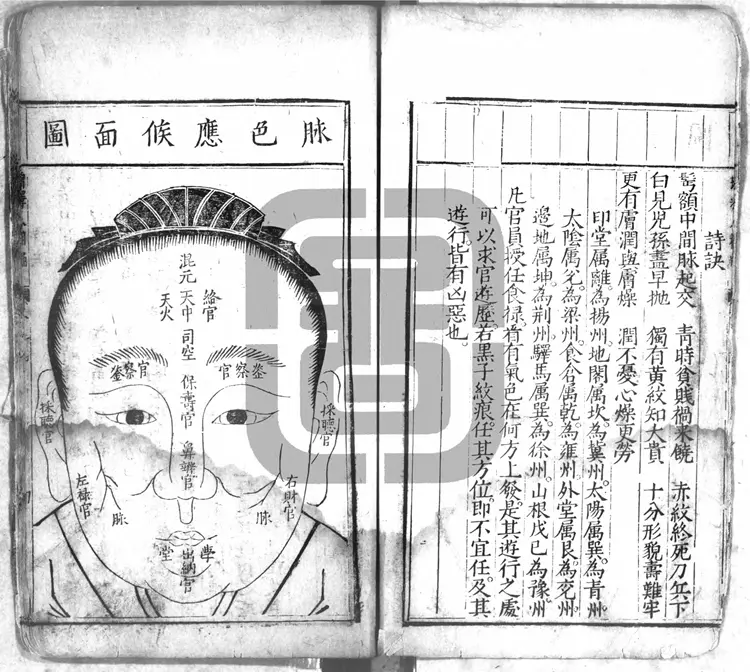 詩訣
髩額中間脉起交 青時貧賤禍来饒 赤紋終死刀兵下
白見児孫盡早抛 獨有黄紋知大貴 十分形貌壽難牢
更有膚潤與膚燥 潤不憂心燥更勞
印堂属離。為揚州。地閣属坎。為冀州。太陽属巽。為青州
太陰属兊。為梁州。食倉属乾。為雍州。外堂属艮。為兖州。
邉地属坤。為荆州。驛馬属巽。為徐州。山根戊巳為豫州。
凡官員授任食禄。看有氣色在何方上發。是其遊行之處
可以求官遊歷。若黒子紋痕。任其方位。即不宜任。及其
遊行。皆有凶惡也。
脉色應候面圖
絳官
混元
天中
天火
司空
保壽官
察官
官察
採聽官
採聽官
鼻辨官
右財官
左禄官
脉
脉
學
堂
出納官